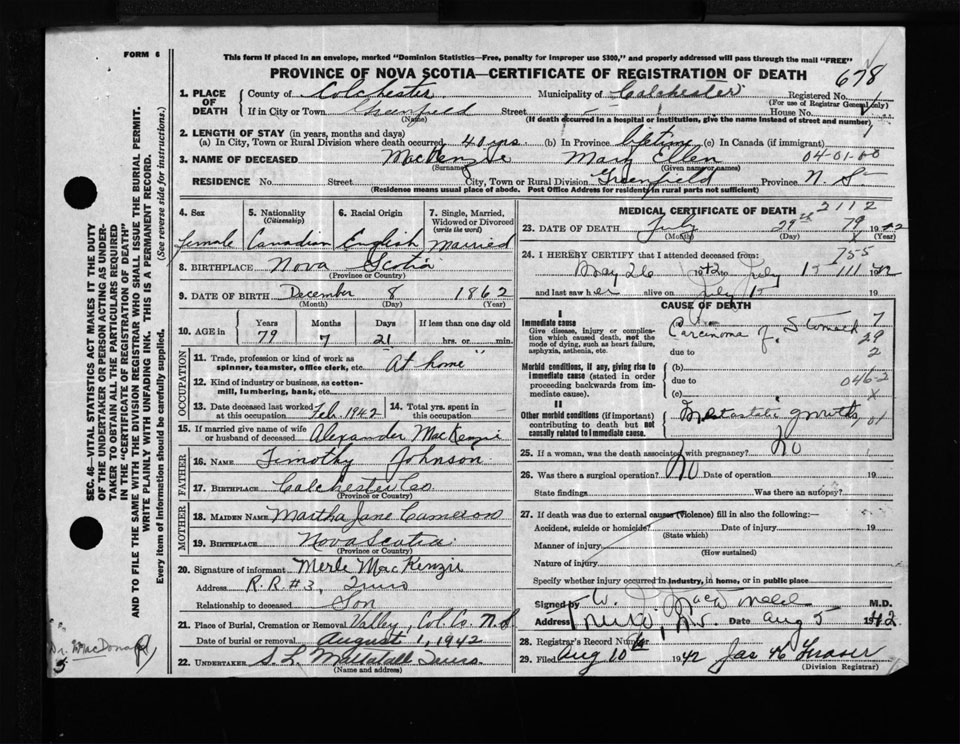 FORM 6
This form if placed in an envelope, marked "Dominion Statistics—Free, penalty for improper use $300," and properly addressed will pass through the mail "FREE"
PROVINCE OF NOVA SCOTIA—CERTIFICATE OF REGISTRATION OF DEATH 678
1. PLACE OF DEATH County of Colchester Municipality of Colchester Registered No.
(For use of Registrar General only)
If in City or Town Greenfield Street House No.
(Name) (If death occurred in a hospital or institution, give the name instead of street and number)
2. LENGTH OF STAY (in years, months and days)
(a) In City, Town or Rural Division where death occurred 40 yrs. (b) In Province lifetime (c) In Canada (if immigrant)
3. NAME OF DECEASED MacKenzie Mary Ellen 04-01-00
(Surname) (Given name or names)
RESIDENCE No. Street City, Town or Rural Division Greenfield Province N. S
(Residence means usual place of abode. Post Office Address for residents in rural parts not sufficient)
4. Sex 5. Nationality (Citizenship) 6. Racial Origin 7. Single, Married, Widowed or Divorced (write the word)
female Canadian English Married
8. BIRTHPLACE Nova Scotia
(Province or Country)
9. DATE OF BIRTH December 8 1862
(Month) (Day) (Year)
10. AGE in Years Months Days If less than one day old
79 7 21 hrs. or min.
OCCUPATION
11. Trade, profession or kind of work as spinner, teamster, office clerk, etc. "At home"
12. Kind of industry or business, as cotton-mill, lumbering, bank, etc.
13. Date deceased last worked at this occupation Feb. 1942 14. Total yrs. spent in this occupation
15. If married give name of wife or husband of deceased Alexander MacKenzie
FATHER
16. NAME Timothy Johnson
17. BIRTHPLACE Colchester Co.
(Province or Country)
MOTHER
18. MAIDEN NAME Martha Jane Cameron
19. BIRTHPLACE Nova Scotia
(Province or Country)
20. Signature of informant Merle MacKenzie
Address R.R. #3, Truro
Relationship to deceased Son
21. Place of Burial, Cremation or Removal Valley, Col. Co. N.S
Date of burial or removal August 1, 1942
22. UNDERTAKER S. L. Truro
(Name and address)
MEDICAL CERTIFICATE OF DEATH 2112
23. DATE OF DEATH July 29th 79 1942
(Month) (Day) (Year)
24. I HEREBY CERTIFY that I attended deceased from:
May 26 1942 to July 15 19
and last saw her alive on July 15 19
CAUSE OF DEATH
I
Immediate cause
Give disease, injury or complication which caused death, not the mode of dying, such as heart failure, asphyxia, asthenia, etc.
(a) Carcinoma of Stomach 7
29
due to 2
Morbid conditions, if any, giving rise to immediate cause (stated in order proceeding backwards from immediate cause).
(b)
due to 046-2
(c) x
II
Other morbid conditions (if important) contributing to death but not causally related to immediate cause.
Metastatic growths
25. If a woman, was the death associated with pregnancy? No
26. Was there a surgical operation? No Date of operation 19
State findings Was there an autopsy?
27. If death was due to external causes (violence) fill in also the following:—
Accident, suicide or homicide? Date of injury 19
(State which)
Manner of injury
(How sustained)
Nature of injury
Specify whether injury occurred in industry, in home, or in public place
Signed by W. D. MacDonald M.D.
Address Truro, N.S. Date Aug 5 1942
28. Registrar's Record Number
29. Filed Aug 10th 1942 Jas H Fraser
(Division Registrar)
SEC. 46—VITAL STATISTICS ACT MAKES IT THE DUTY
OF THE UNDERTAKER OR PERSON ACTING AS UNDER-
TAKER TO OBTAIN ALL THE PARTICULARS REQUIRED
IN THE "CERTIFICATE OF REGISTRATION OF DEATH"
AND TO FILE THE SAME WITH THE DIVISION REGISTRAR WHO SHALL ISSUE THE BURIAL PERMIT.
WRITE PLAINLY WITH UNFADING INK. THIS IS A PERMANENT RECORD.
Every item of information should be carefully supplied. (See reverse side for instructions.)
Dr. MacDonald